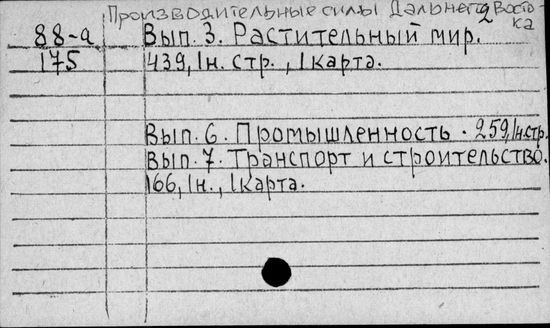 Производительные силы Дальнего Восто-
ка
2
88-а Вып. 3. Растительный мир.
175 439, 1 н. стр., 1 карта.
Вып. 6. Промышленность. 259, 1 н. стр.
Вып. 7. Транспорт и строительство.
166, 1 н., 1 карта.